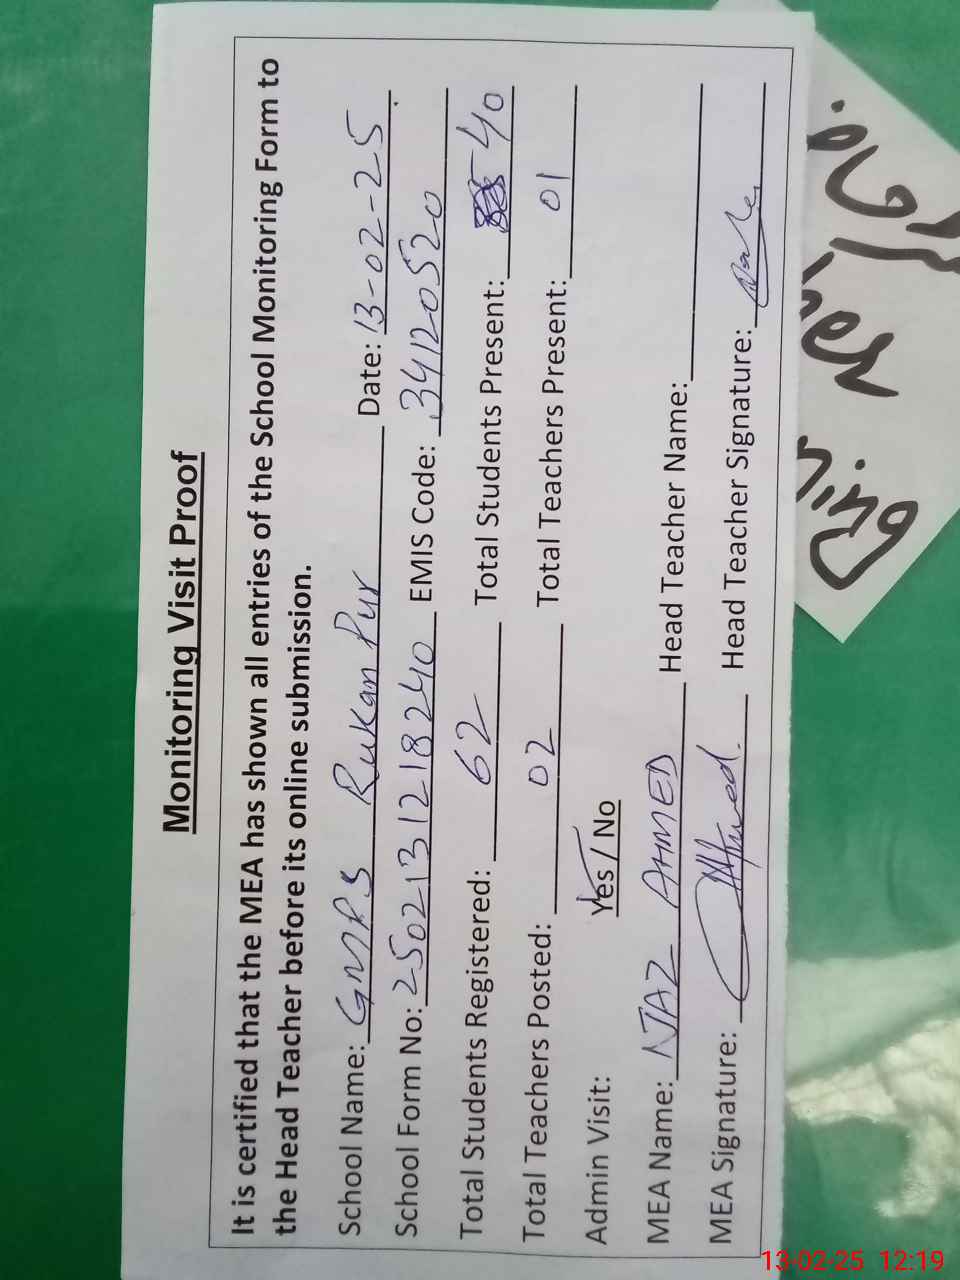 Monitoring Visit Proof
It is certified that the MEA has shown all entries of the School Monitoring Form to
the Head Teacher before its online submission.
School Name: GMPS Rukan Pur Date: 13-02-25
School Form No: 2502131218240 EMIS Code: 34120520
Total Students Registered: 62 Total Students Present: 40
Total Teachers Posted: 02 Total Teachers Present: 01
Admin Visit: Yes / No
MEA Name: NJAZ AHMED Head Teacher Name:
MEA Signature: Head Teacher Signature:
ning
13-02-25 12:19